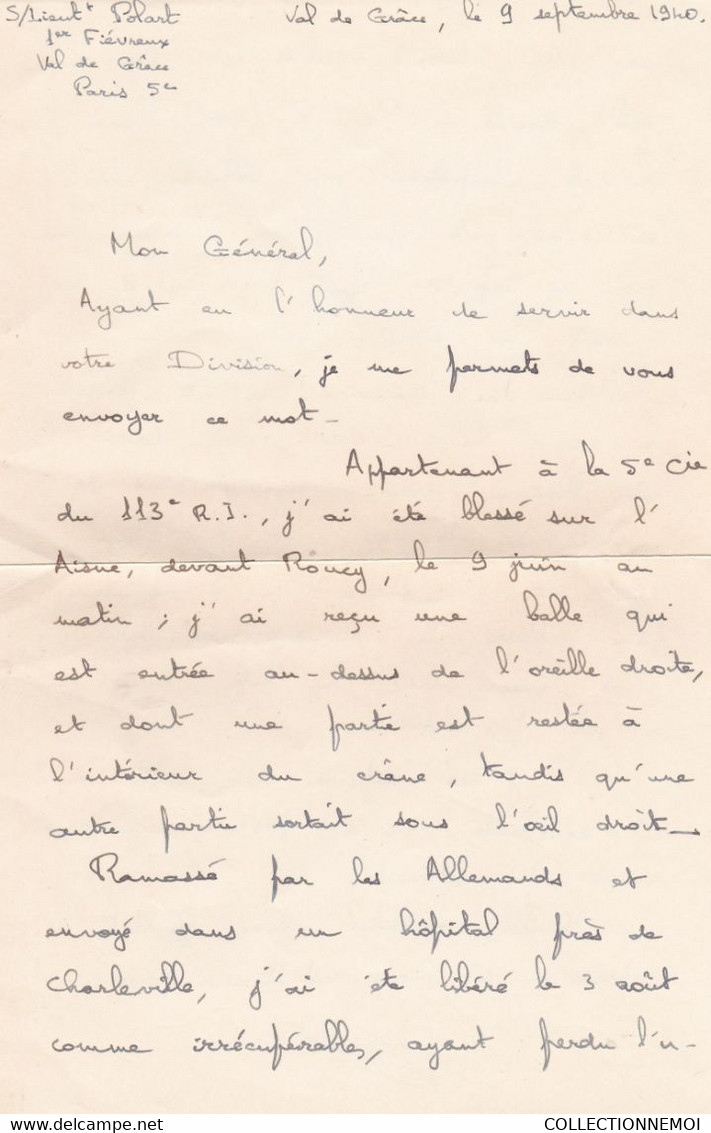 S/Lieutt Polart
1er Fiévreux
Val de Grâce
Paris 5e
Val de Grâce, le 9 septembre 1940.
Mon Général,
Ayant eu l'honneur de servir dans
votre Division, je me permets de vous
envoyer ce mot –
Appartenant à la 5e Cie
du 113e R.I., j'ai été blessé sur l'
Aisne, devant Roucy, le 9 juin au
matin ; j'ai reçu une balle qui
est entrée au-dessus de l'oreille droite,
et dont une partie est restée à
l'intérieur du crâne, tandis qu'une
autre partie sortait sous l'œil droit –
Ramassé par les Allemands et
envoyé dans un hôpital près de
Charleville, j'ai été libéré le 3 août
comme irrécupérables, ayant perdu l'u-
delcampe.net
COLLECTIONNEMOI